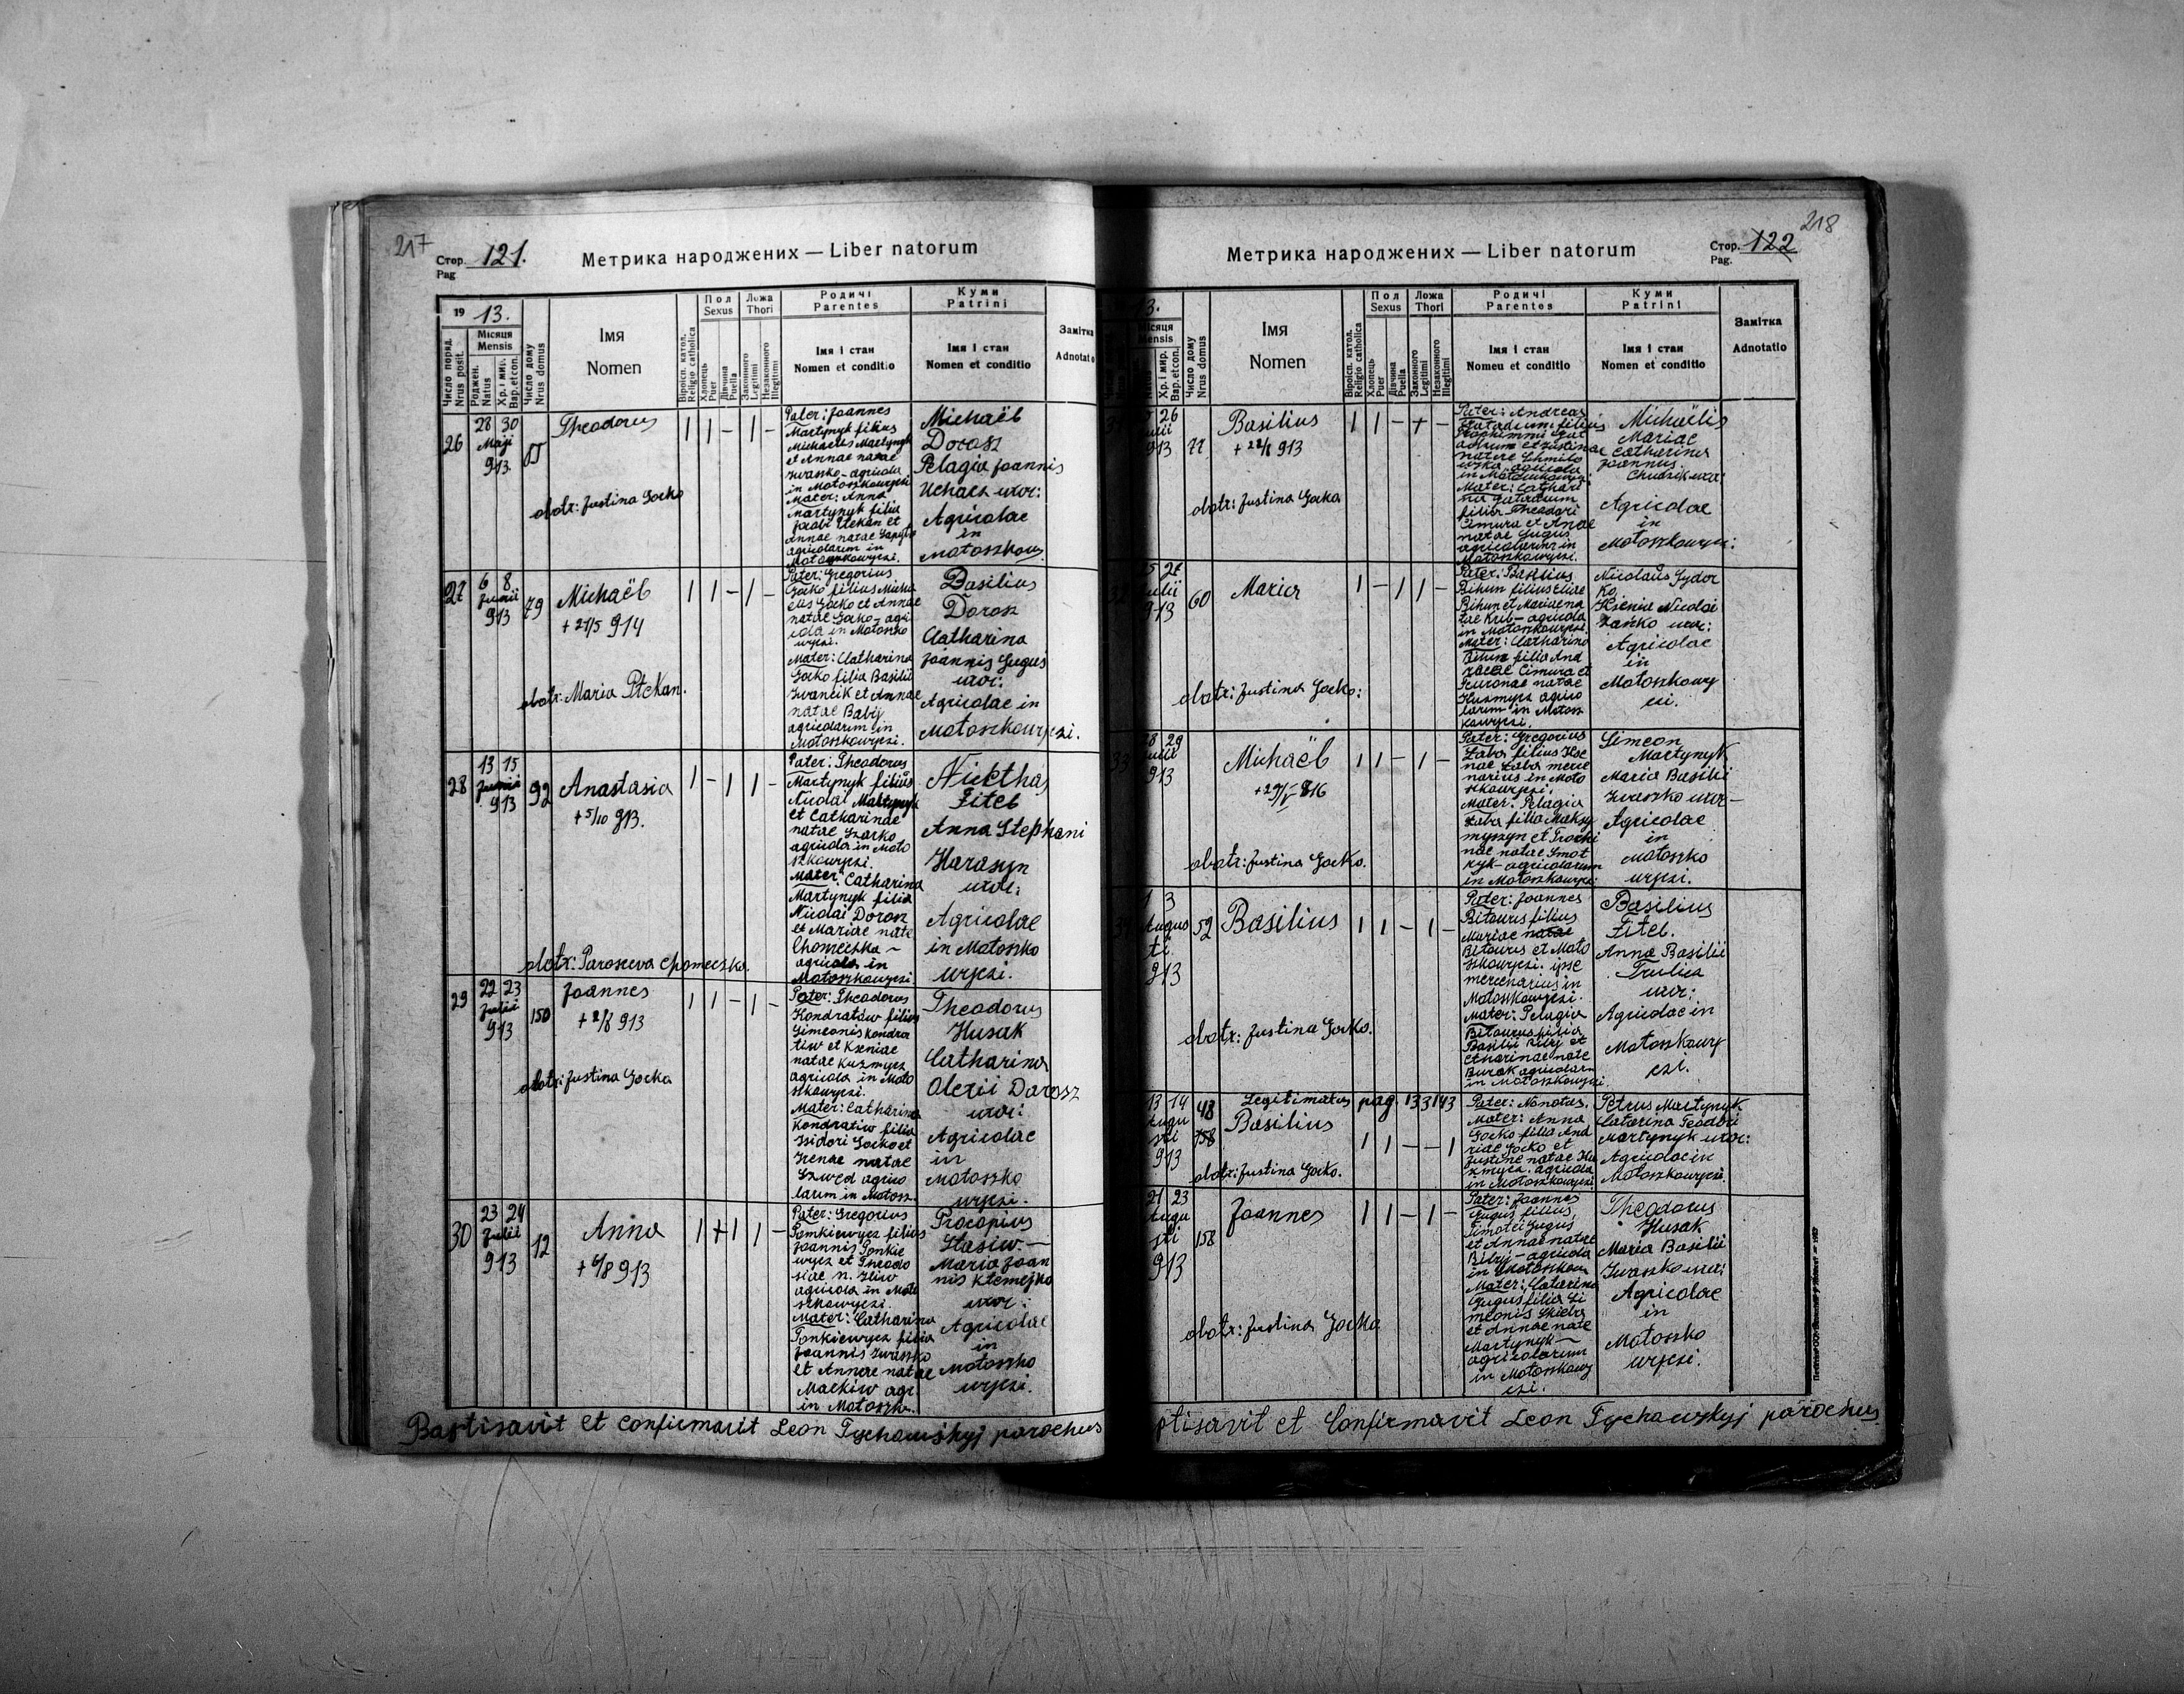 217
Стор. 121.
Pag
Метрика народжених — Liber natorum
19 13.
Число поряд.
Nrus posit.
Місяця
Mensis
Роджен.
Natus
Хр. і мир.
Bap. et con.
Число дому
Nrus domus
Імя
Nomen
Віроісп. катол.
Religio catholica
Пол
Sexus
Хлопець
Puer
Дівчина
Puella
Ложа
Thori
Законного
Legitimi
Незаконного
Illegitimi
Родичі
Parentes
Імя і стан
Nomen et conditio
Куми
Patrini
Імя і стан
Nomen et conditio
Замітка
Adnotatio
26
28 30
Maji
913.
55
Theodorus
1 1 - 1 -
obstr: Justina Gocko
Pater: Joannes
Martynyk filius
Michaelis Martynyk
et Annae natae
Iwaszko - agricola
in Matoszkowyczi
Mater: Anna
Martynyk filia
Jacobi Ptekan et
Annae natae
agricolarum in
Matoszkowyczi.
Michaël
Dorosz
Pelagia Joannis
uxor:
Agricolae
in
Matoszkow.
27
6 8
Junii
913
79
Michaël
+ 27/5 914
1 1 - 1 -
obstr: Maria Ptekan.
Pater: Gregorius
Gocko filius Micha
elis Gocko et Annae
natae Gocko - agri
cola in Matoszko
wyczi.
Mater: Catharina
Gocko filia Basilii
Iwancik et Annae
natae Babij
agricolarum in
Matoszkowyczi.
Basilius
Dorosz
Catharina
Joannis Gugus
uxor:
Agricolae in
Matoszkowyczi.
28
13 15
Junii
913
92
Anastasia
+ 5/10 913.
1 - 1 1 -
obstr: Parasceva Chomeczko.
Pater: Theodorus
Martynyk filius
Nicolai Martynyk
et Catharinae
natae Szarko
agricola in Mato
szkowyczi.
Mater: Catharina
Martynyk filia
Nicolai Dorosz
et Mariae nate
Chomeczka ~
agricola in
Matoszkowyczi.
Nicethas
Fitel
Anna Stephani
Harasyn
uxor:
Agricolae
in Matoszko
wyczi.
29
22 23
Julii
913
150
Joannes
+ 2/8 913
1 1 - 1 -
obstr: Justina Gocka
Pater: Theodorus
Kondratiw filius
Simeonis Kondra
tiw et Kseniae
natae Kuzmycz
agricola in Mato
szkowyczi.
Mater: Catharina
Kondratiw filia
Isidori Gocko et
Irenae natae
Szwed agrico
larum in Matosz.
Theodorus
Husak
Catharina
Olexii Darosz
uxor:
Agricolae
in
Matoszko
wyczi.
30
23 24
Julii
913
12
Anna
+ 6/8 913
1 + 1 1 -
Pater: Gregorius
Ponkiewycz filius
Joannis Ponkie
wycz et Theodo
siae n. Iliw
agricola in Mato
szkowyczi.
Mater: Catharina
Ponkiewycz filia
Joannis Iwaszko
et Annae natae
Mackiw agr.
in Matoszk.
Procopius
Stasiw. —
Maria Joan
nis Klemejko
uxor:
Agricolae
in
Matoszko
wyczi.
Baptisavit et confirmavit Leon Tychowskyj parochus
218
Метрика народжених — Liber natorum
Стор. 122
Pag.
13.
Місяця
Mensis
Хр. і мир.
Bap. et con.
Число дому
Nrus domus
Імя
Nomen
Віроісп. катол.
Religio catholica
Пол
Sexus
Хлопець
Puer
Дівчина
Puella
Ложа
Thori
Законного
Legitimi
Незаконного
Illegitimi
Родичі
Parentes
Імя і стан
Nomeu et conditio
Куми
Patrini
Імя і стан
Nomen et conditio
Замітка
Adnotatio
26
913
77
Basilius
+ 22/8 913
1 1 - + -
obstr: Justina Gocka
Pater: Andreas
filius
agricola
in Matoszkowyczi
Mater: Cathari
na
filia Theodori
Cimura et Annae
natae Gugus
agricolarum in
Matoszkowyczi.
Michaëlis
Mariae
Catharina
Joannis
uxor:
Agricolae
in
Matoszkowyczi:
32
Julii
913
60
Maria
1 - 1 1 -
obstr: Justina Gocko:
Pater: Basilius
Bihun filius Eliae
Bihun et Mariae na
tae Kub - agricola
in Matoszkowyczi.
Mater: Catharina
Bihun filia And
reae Cimura et
natae
Kuzmycz agrico
larum in Matosz
kowyczi.
Nicolaus Sydor
Ko.
Ksenia Nicolai
uxor:
Agricolae
in
Matoszkowy
czi.
33
28 29
Julii
913
Michaël
+ 29/V 816
1 1 - 1 -
obstr: Justina Gocko.
Pater: Gregorius
Laba filius Kse
nae Laba merce
narius in Mato
szkowyczi.
Mater: Pelagia
Laba filia Maksy
natae Smot
ryk - agricolarum
in Matoszkowyczi
Simeon
Martynyk
Maria Basilii
Iwaszko uxor —
Agricolae
in
Matoszko
wyczi.
1 3
Augus
ti
913
52
Basilius
1 1 - 1 -
obstr: Justina Gocko.
Pater: Joannes
Bitouris filius
Mariae natae
Bitouris et Mato
szkowyczi. ipse
mercenarius in
Matoszkowyczi.
Mater: Pelagia
Bitouris filia
Basilii et
Catharinae nate
Burak agricolarum
in Matoszkowyczi.
Basilius
Fitel.
Anna Basilii
uxor:
Agricolae in
Matoszkowy
czi.
13 14
Augu
sti
913
48
158
Legitimatus pag. 133 143
Basilius
1 1 - - 1
obstr: Justina Gocko.
Pater: Nonotus.
Mater: Anna
Gocko filia And
riae Gocko et
Justine natae Ku
zmycz. agricola
in Matoszkowyczi
Petrus Martynyk
Catarina Teodori
Martynyk uxor:
Agricolae in
Matoszkowyczi.
21 23
Augu
sti
913
158
Joannes
1 1 - 1 -
obstr: Justina Gocko
Pater: Joannes
Gugus filius
Timotei Gugus
et Annae natae
agricola
in Matoszkow
Mater: Catarina
Gugus filia Si
meonis
et Annae nate
Martynyk —
agricolarum
in Matoszkowy
czi.
Theodorus
Husak
Maria Basilii
Iwaszko uxor:
Agricolae
in
Matoszko
wyczi.
ptisavit et Confirmavit Leon Tychowskyj parochus